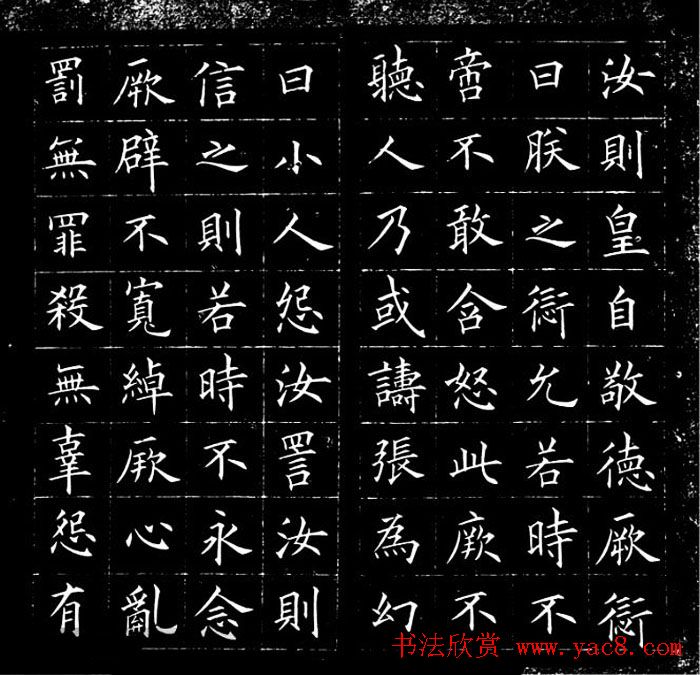 汝則皇自敬德厥諐
曰朕之諐允若時不
啻不敢含怒此厥不
聽人乃或譸張為幻
曰小人怨汝詈汝則
信之則若時不永念
厥辟不寬綽厥心亂
罰無罪殺無辜怨有
书法欣赏 www.yac8.com